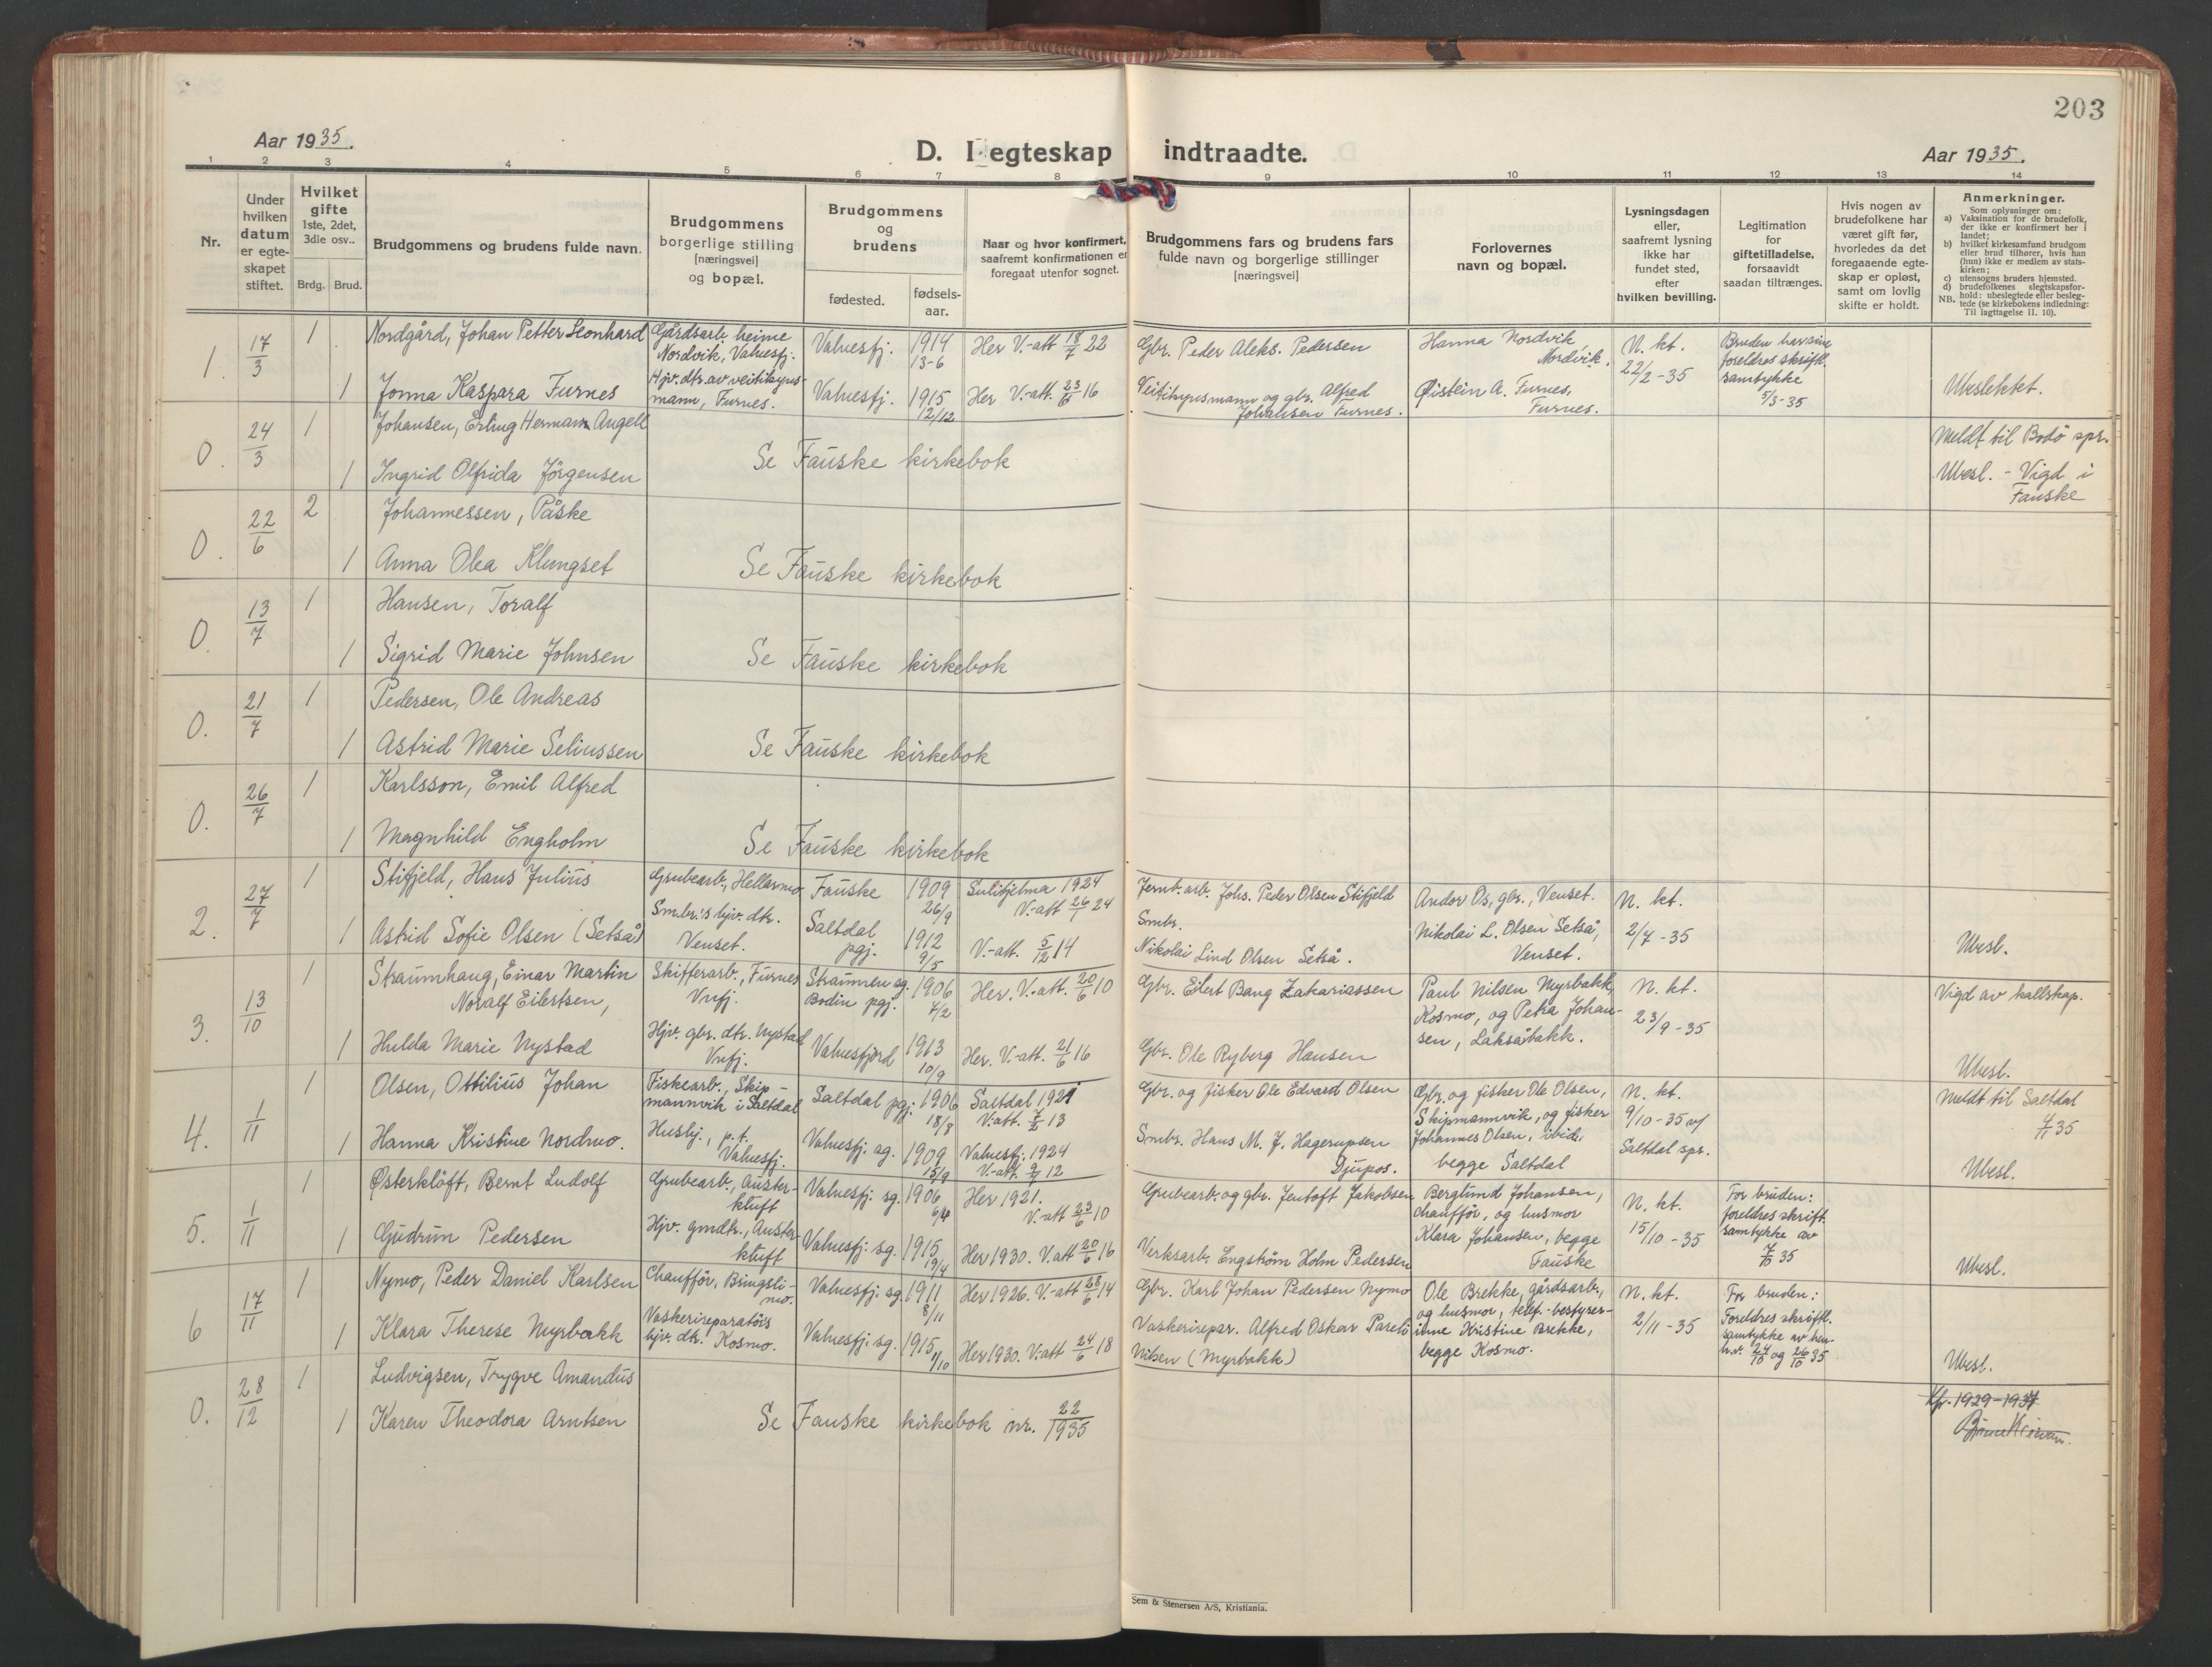 203
Aar 1935.
D. I egteskap indtraadte.
Aar 1935.
1 2 3 4 5 6 7 8 9 10 11 12 13 14
Nr.
Under
hvilken
datum
er egte-
skapet
stiftet.
Hvilket
gifte
1ste, 2det,
3die osv..
Brdg. Brud.
Brudgommens og brudens fulde navn.
Brudgommens
borgerlige stilling
[næringsvei]
og bopæl.
Brudgommens
og
brudens
fødested.
fødsels-
aar.
Naar og hvor konfirmert,
saafremt konfirmationen er
foregaat utenfor sognet.
Brudgommens fars og brudens fars
fulde navn og borgerlige stillinger
[næringsvei]
Forlovernes
navn og bopæl.
Lysningsdagen
eller,
saafremt lysning
ikke har
fundet sted,
efter
hvilken bevilling.
Legitimation
for
giftetilladelse,
forsaavidt
saadan tiltrænges.
Hvis nogen av
brudefolkene har
været gift før,
hvorledes da det
foregaaende egte-
skap er opløst,
samt om lovlig
skifte er holdt.
Anmerkninger.
Som oplysninger om:
a) Vaksination for de brudefolk,
der ikke er konfirmert her i
landet;
b) hvilket kirkesamfund brudgom
eller brud tilhører, hvis han
(hun) ikke er medlem av stats-
kirken;
c) utensogns bruders hjemsted.
d) brudefolkenes slegtskapsfor-
hold: ubeslegtede eller besleg-
NB. tede (se kirkebokens indledning:
Til iagttagelse II. 10).
1. 17/3 1
Nordgård, Johan Petter Leonhard
Gårdsarb. heime
Nordvik, Valnesfj.
Valnesfj. 1914
13-6
Her V.-att 18/7 22
Gbr. Peder Aleks. Pedersen
Hanna Nordvik,
Nordvik.
N. kt.
22/2-35
Bruden har sine
foreldres skriftl.
samtykke
5/3-35
1 Jonna Kaspara Furnes
Hjv. dtr. av veitikyns-
mann, Furnes.
Valnesfj. 1915
12/12
Her V.-att. 23/6 16
Veitikynsmann og gbr. Alfred
Johansen Furnes.
Øistein A. Furnes,
Furnes.
Ubeslektet.
0. 24/3 1
Johansen, Erling Hermann Angell
1 Ingrid Olfrida Jörgensen
Se Fauske kirkebok
Meldt til Bodö spr.
Ubesl. - Vigd i
Fauske
0. 22/6 2
Johannessen, Påske
1 Anna Olea Klungset
Se Fauske kirkebok
0. 13/7 1
Hansen, Toralf
1 Sigrid Marie Johnsen
Se Fauske kirkebok
0. 21/7 1
Pedersen, Ole Andreas
1 Astrid Marie Seliussen
Se Fauske kirkebok
0. 26/7 1
Karlsson, Emil Alfred
1 Magnhild Engholm
Se Fauske kirkebok
2. 27/7 1
Stifjeld, Hans Julius
Grubearb., Hellarmo
Fauske 1909
26/9
Sulitjelma 1924
V.-att 26/1 24
Jernb.arb. Johs. Peder Olsen Stifjeld
Andor Os, gbr., Venset.
N. kt.
2/7-35
1 Astrid Sofie Olsen (Setså)
Smbr.'s hjv. dtr.
Venset.
Saltdal
pgj. 1912
9/5
V.-att. 5/12 14
Smbr.
Nikolai Lind Olsen Setså.
Nikolai L. Olsen Setså,
Venset.
Ubesl.
3. 13/10 1
Straumhaug, Einar Martin
Noralf Eilertsen,
Skifferarb., Furnes
Vnfj.
Straumen sg.
Bodin pgj. 1906
7/2
Her. V.-att. 20/6 10
Gbr. Eilert Bang Zakariassen
Paul Nilsen Myrbakk,
Kosmo, og Petra Johan-
sen, Laksåbakk.
N. kt.
23/9-35
Vigd av kallskap.
1 Hulda Marie Nystad
Hjv. gbr. dtr. Nystad
Vnfj.
Valnesfjord 1913
10/9
Her. V.-att. 21/6 16
Gbr. Ole Ryberg Hansen
Ubesl.
4. 1/11 1
Olsen, Ottilius Johan
Fiskearb., Skip-
mannvik i Saltdal
Saltdal pgj. 1906
18/8
Saltdal 1921
V.att. 7/2 13
Gbr. og fisker Ole Edvard Olsen
Gbr. og fisker Ole Olsen,
Skipmannvik, og fisker
Johannes Olsen, ibid.,
begge Saltdal
N. kt.
9/10-35 v/
Saltdal spr.
Meldt til Saltdal
4/11 35
1 Hanna Kristine Nordmo.
Hushj., p.t.
Valnesfj.
Valnesfj. sg. 1909
15/9
Valnesfj. 1924
V.-att. 12
Smbr. Hans M. J. Hagerupsen
Djupos.
Ubesl.
5. 1/11 1
Østerklöft, Bernt Ludolf
Grubearb., Auster-
kluft
Valnesfj. sg. 1906
6/4
Her 1921.
V.-att 23/6 10
Grubearb. og gbr. Jentoft Jakobsen
Berglund Johansen,
chaufför, og husmor
Klara Johansen, begge
Fauske
N. kt.
15/10-35
For bruden:
foreldres skrift.
samtykke av
7/10 35
1 Gudrun Pedersen
Hjv. gmdtr., Auster-
kluft
Valnesfj. sg. 1915
19/4
Her 1930. V.att 20/6 16
Verksarb. Engström Holm Pedersen
Ubesl.
6 17/11 1
Nymo, Peder Daniel Karlsen
Chaufför, Bringsli-
mo.
Valnesfj. sg. 1911
8/11
Her 1926. V.-att 28/6 14
Gbr. Karl Johan Pedersen Nymo
Ole Brekke, gårdsarb.,
og husmor, telef.-bestyrer-
inne Kristine Brekke,
begge Kosmo.
N. kt.
2/11-35
For bruden:
Foreldres skriftl.
samtykke av hen-
h.v. 24/10 og 26/10 35
1 Klara Therese Myrbakk
Vaskerireparatörs
hjv. dtr. Kosmo.
Valnesfj. sg. 1915
1/10
Her 1930. V.att 24/6 18
Vaskerirepar. Alfred Oskar Pareli
Nilsen (Myrbakk)
Ubesl.
0. 28/12 1
Ludvigsen, Trygve Amandus
1 Karen Theodora Arntsen
Se Fauske kirkebok nr. 22/1935
Kfr. 1929-1934
Sem & Stenersen A/S, Kristiania.